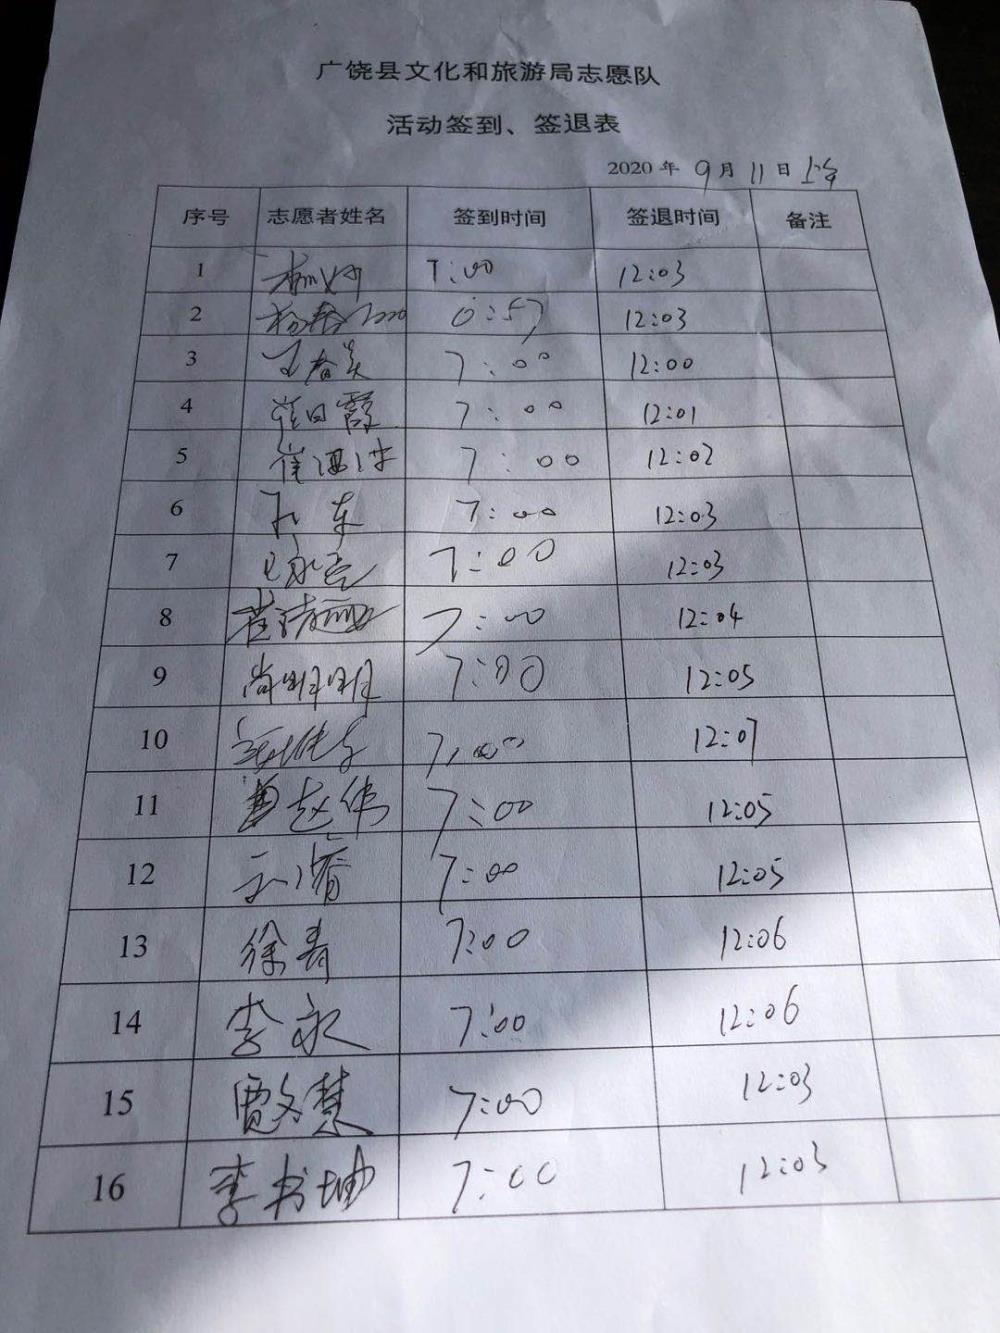 广饶县文化和旅游局志愿队
活动签到、签退表
2020 年 9 月 11 日 上午
序号 志愿者姓名 签到时间 签退时间 备注
1 7:00 12:03
2 6:57 12:03
3 7:00 12:00
4 崔日霞 7:00 12:01
5 7:00 12:02
6 7:00 12:03
7 7:00 12:03
8 7:00 12:04
9 尚明明 7:00 12:05
10 7:00 12:07
11 赵伟 7:00 12:05
12 7:00 12:05
13 徐青 7:00 12:06
14 李永 7:00 12:06
15 贾文慧 7:00 12:03
16 李书坤 7:00 12:03